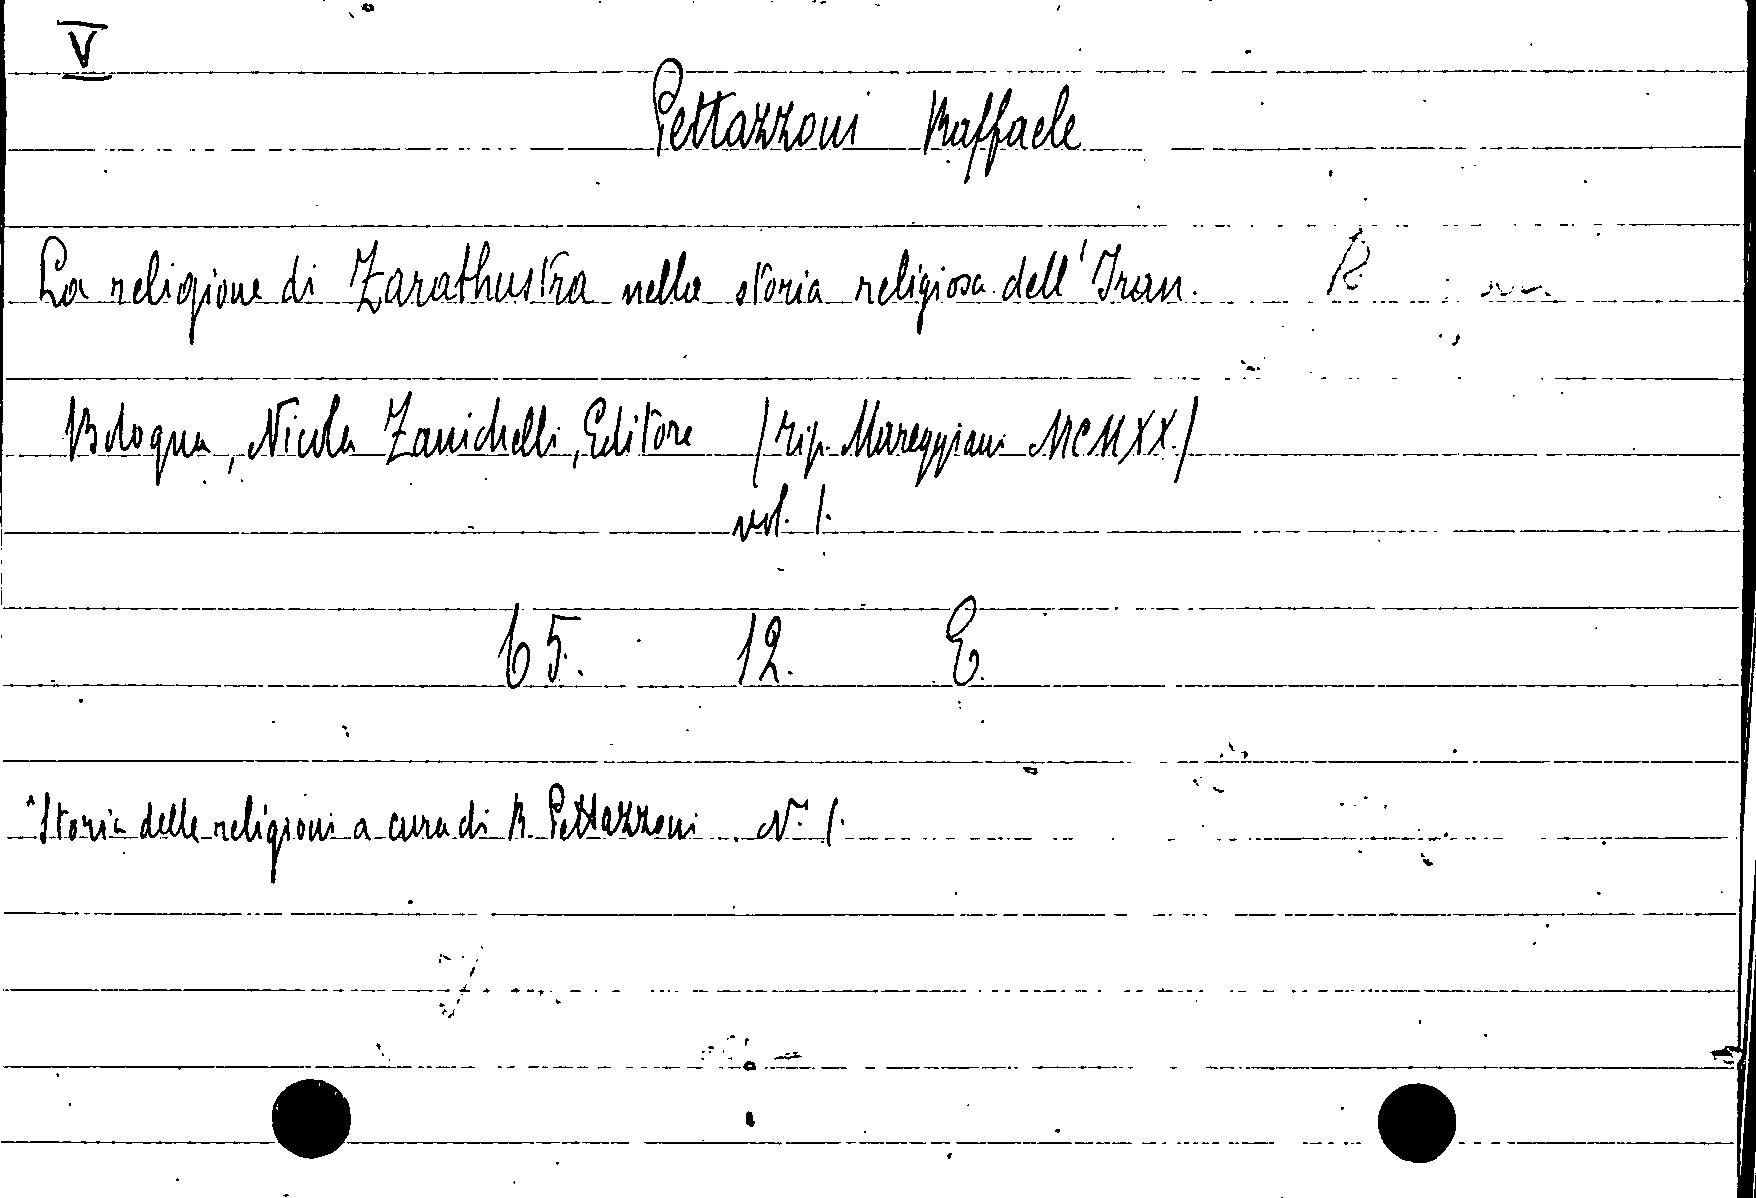 V
Pettazzoni Raffaele
La religione di Zarathustra nella storia religiosa dell'Iran. R
Bologna, Nicola Zanichelli, Editore (tip. Mareggiani MCMXX.)
vol. 1.
65. 12. E.
"Storia delle religioni a cura di R. Pettazzoni N. 1.